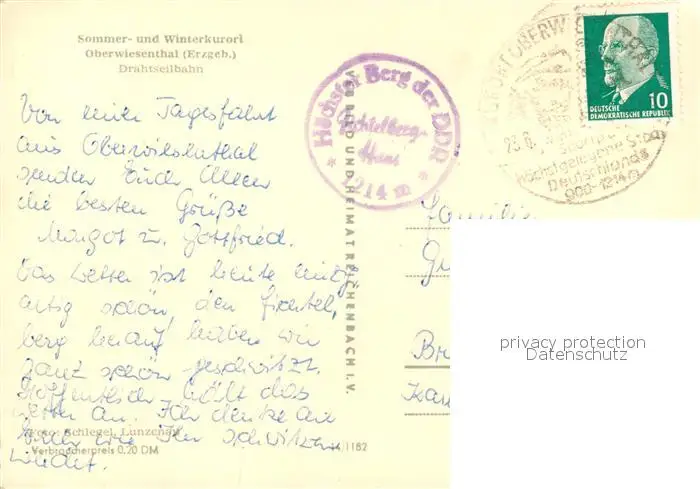 Sommer- und Winterkurort
Oberwiesenthal (Erzgeb.)
Drahtseilbahn
Von einer Tagesfahrt
aus Oberwiesenthal
senden Euch Allen
die besten Grüße
Margot u. Gottfried.
Das Wetter ist heute
artig schön, den Fichtel,
berg herauf haben wir
ganz schön geschwitzt.
Hoffentlich hält das
Wetter an. Ich denke an
Euch wie Ihr schwitzen
werdet.
Foto: Schlegel, Lunzenau
Verbraucherpreis 0,20 DM
BILD UND HEIMAT REICHENBACH I. V.
1182
Höchster Berg der DDR
Fichtelberg-
Haus
1214 m
KURORT OBERW
23.6.
Höchstgelegene Stadt
Deutschlands
900-1214m
DEUTSCHE
DEMOKRATISCHE REPUBLIK
10
Familie
privacy protection
Datenschutz